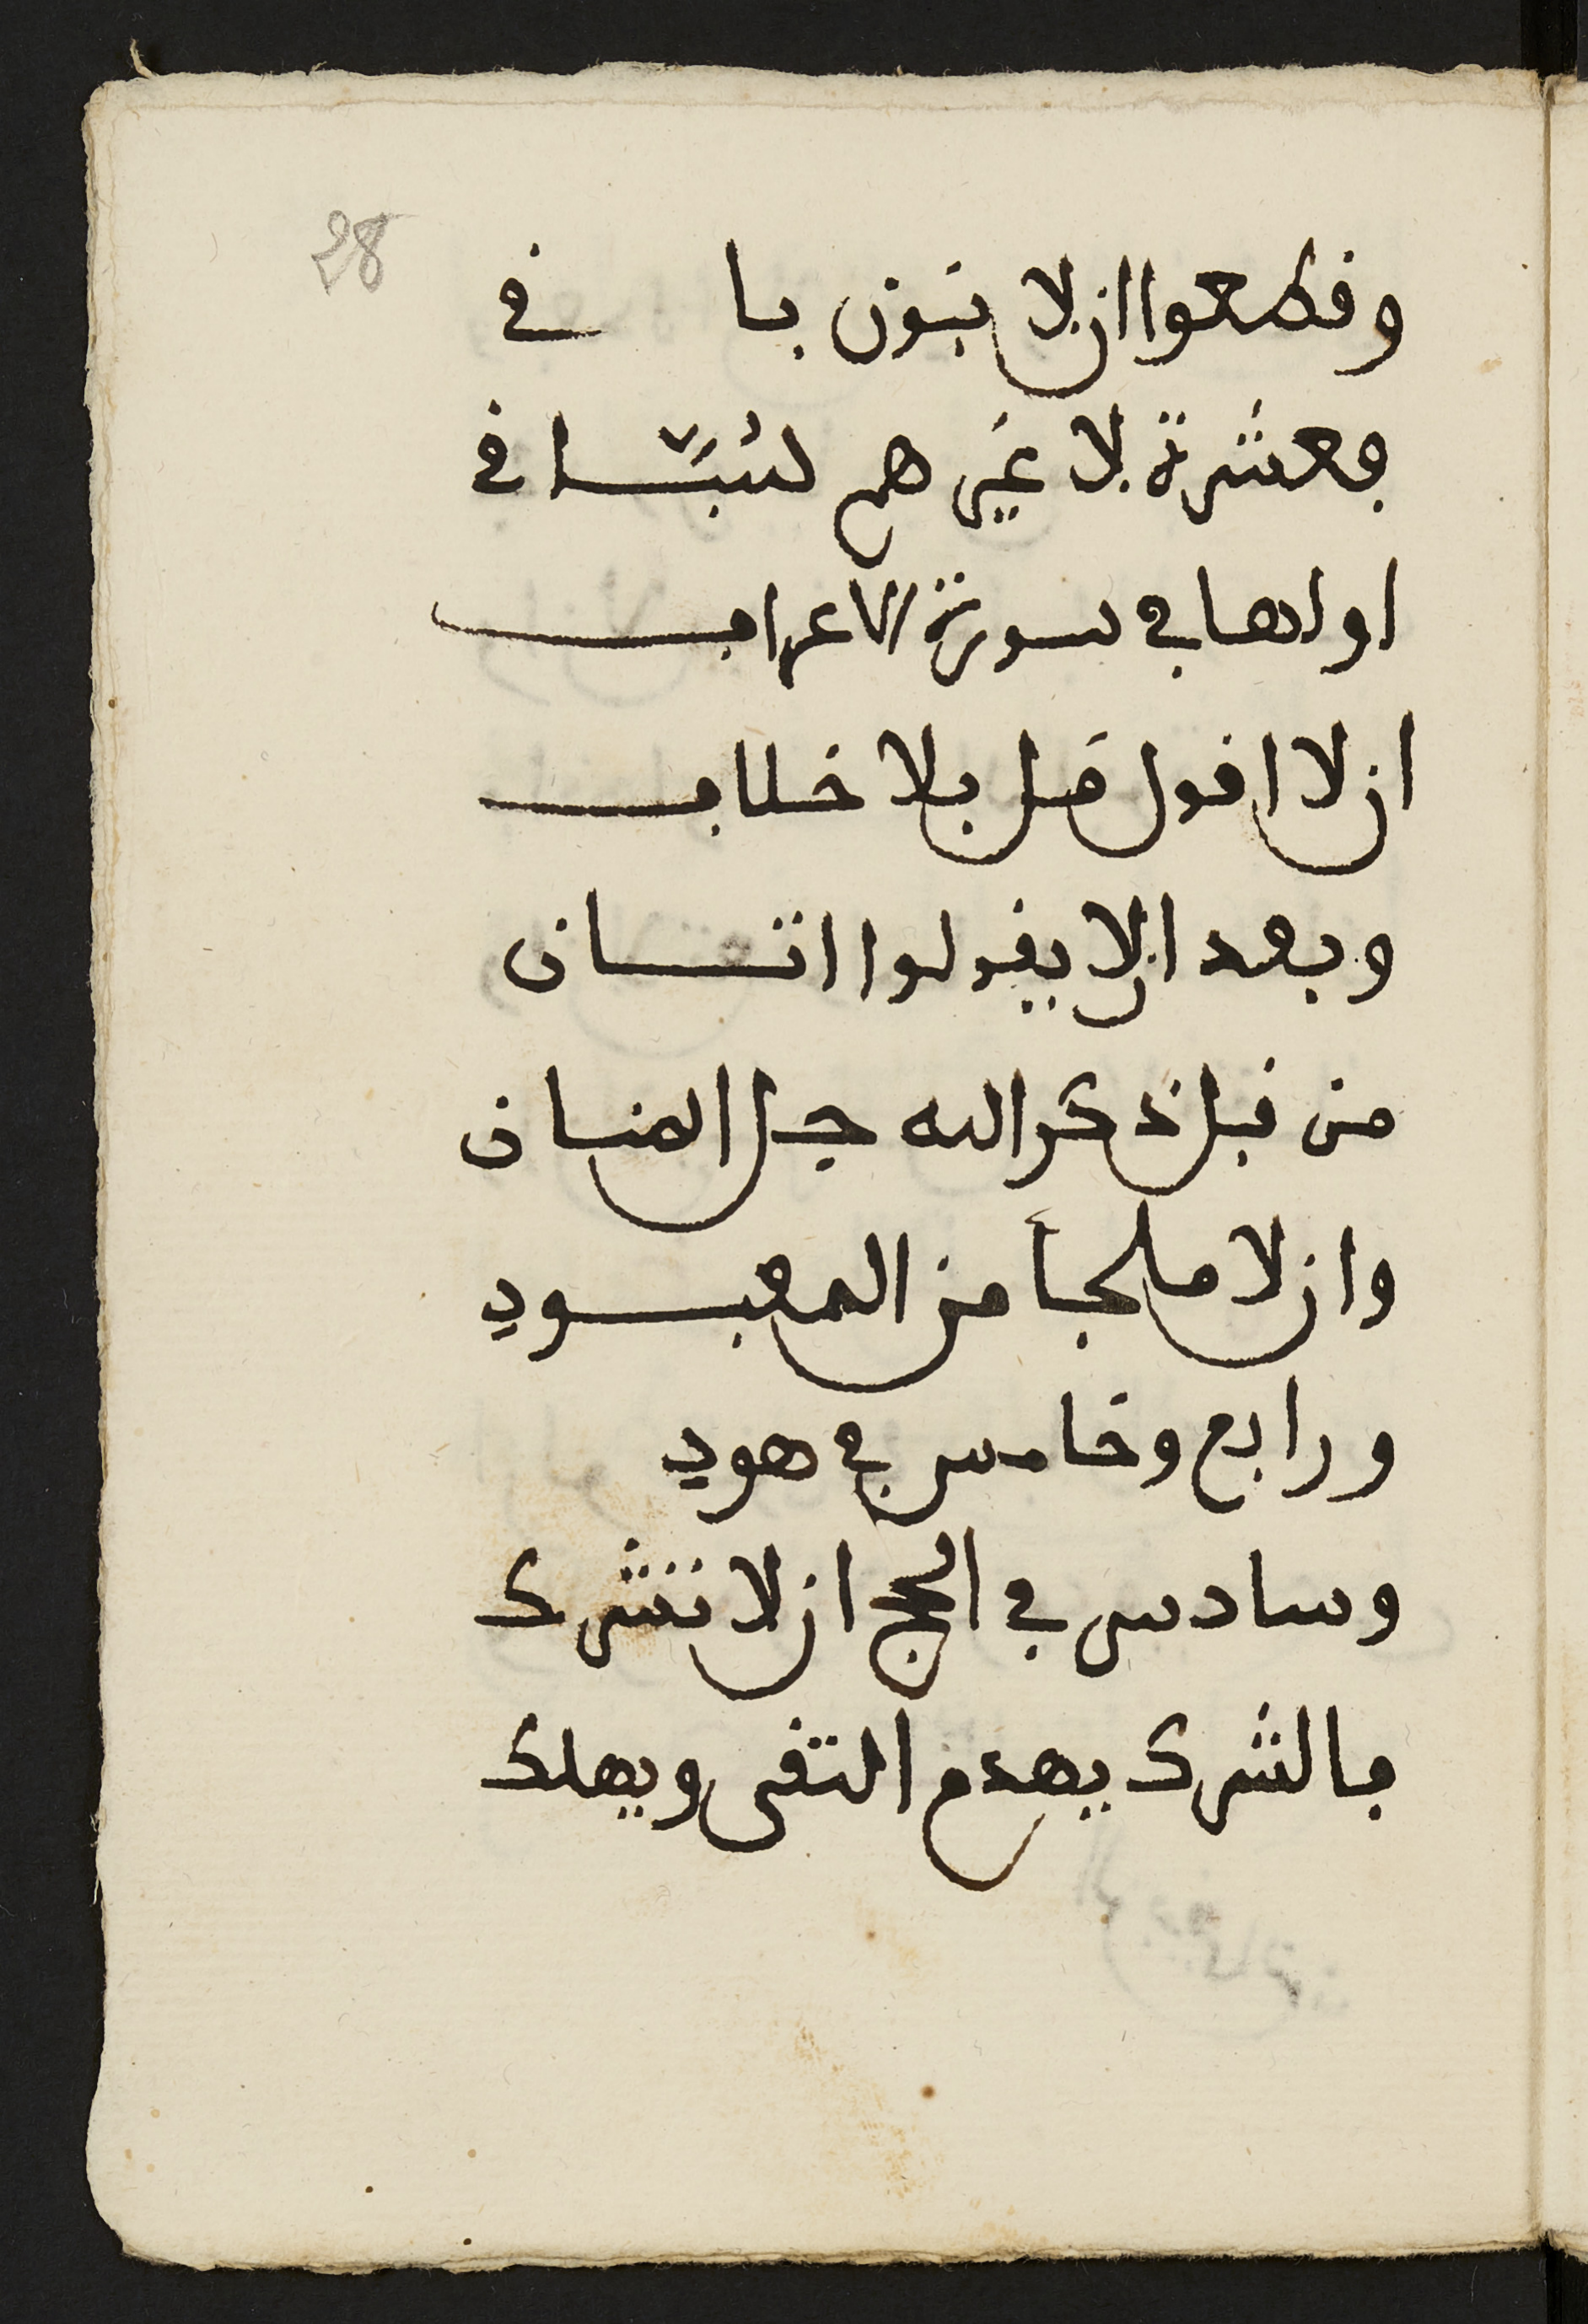 28
وقطعوا ان لا بنون با في
فعشرة لا غير هم لتبتا في
اولها في سورة الاعراف
ان لا اقول قل بلا خلاف
وبعد ان لا يقولوا اتسان
من قبل ذكر الله جل المنان
وان لا ملجأ من المعبود
ورابع وخامس في هود
وسادس في الحج ان لا تشرك
فالشرك يهدم التقى ويهلك
الربيعان